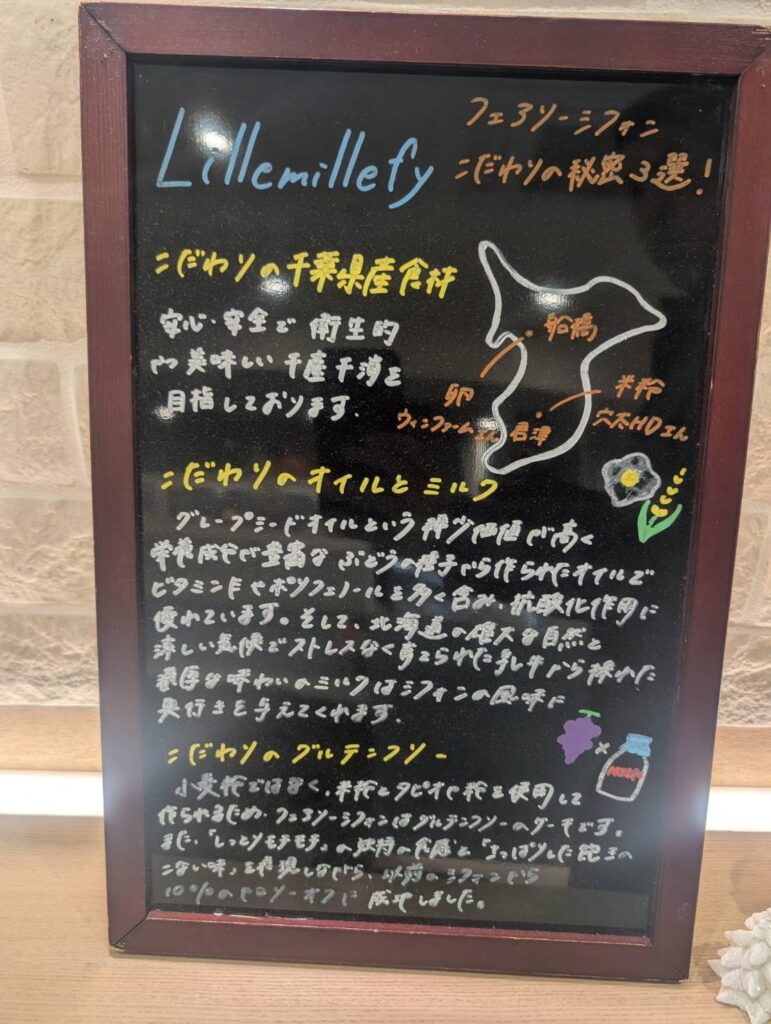 Lillemillefy
フェアリーシフォン
こだわりの秘密3選!
こだわりの千葉県産食材
安心・安全で衛生的
や美味しい千産千消を
目指しております.
船橋
卵
ウィンファームさん
君津
米粉
穴太HDさん
こだわりのオイルとミルク
グレープシードオイルという稀少価値が高く
栄養成分が豊富なぶどうの種子から作られたオイルで
ビタミンEやポリフェノールを多く含み、抗酸化作用に
優れています。そして、北海道の雄大な自然と
涼しい気候でストレスなく育てられた乳牛から採れた
濃厚な味わいのミルクはシフォンの風味に
奥行きを与えてくれます.
こだわりのグルテンフリー
小麦粉ではなく、米粉とタピオカ粉を使用して
作られるため、フェアリーシフォンはグルテンフリーのケーキです。
また、「しっとりモチモチ」の独特の食感と「さっぱりした飽きの
こない味」を表現しながら、以前のシフォンから
10%のカロリーオフに成功しました。